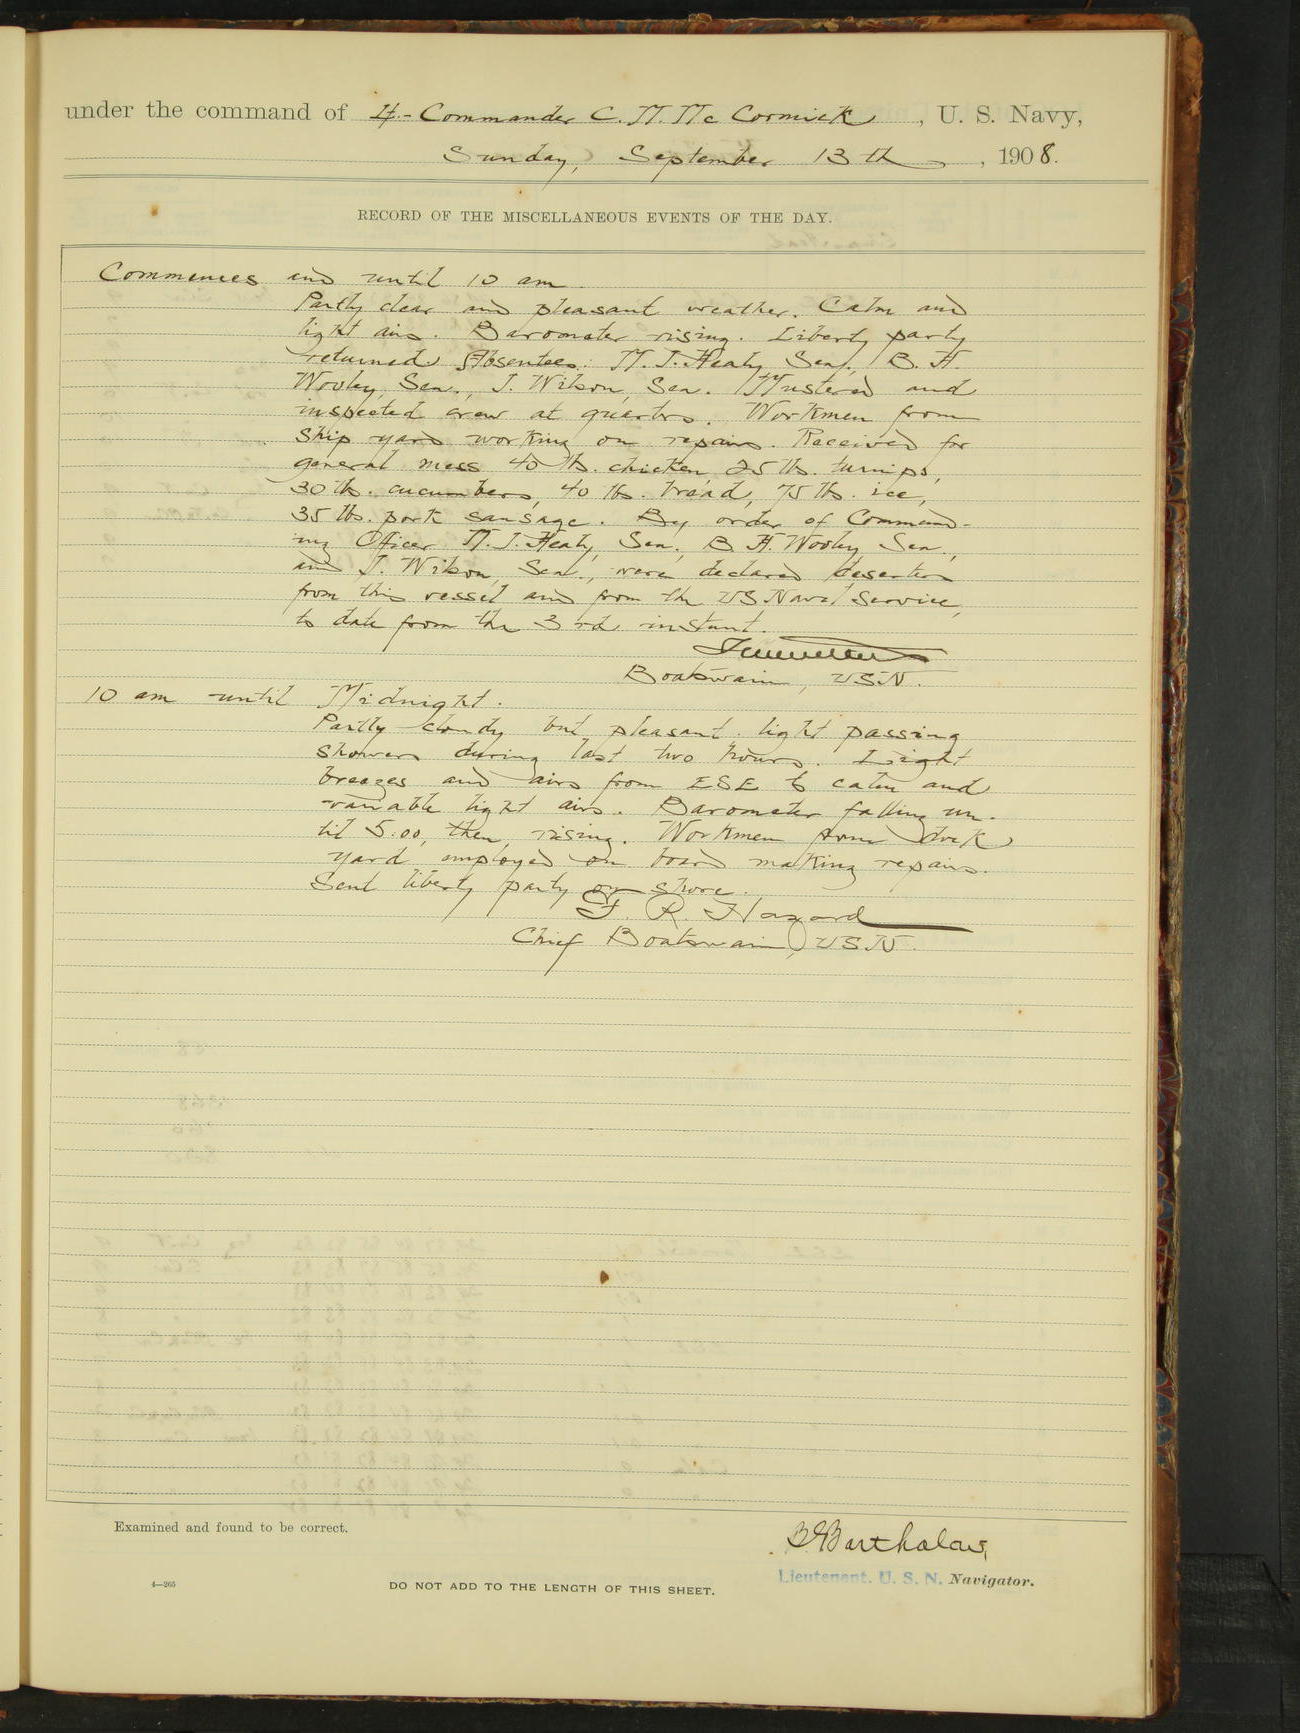 under the command of Lt.-Commander C. M. McCormick, U. S. Navy,
Sunday, September 13th, 1908.
RECORD OF THE MISCELLANEOUS EVENTS OF THE DAY.
Commences and until 10 am.
Partly clear and pleasant weather. Calm and
light airs. Barometer rising. Liberty party
returned. Absentees: M. J. Healy, Sea., B. H.
Wooley, Sea., J. Wilson, Sea. Mustered and
inspected crew at quarters. Workmen from
ship yard working on repairs. Received for
general mess 40 lbs. chicken, 25 lbs. turnips,
30 lbs. cucumbers, 40 lbs. bread, 75 lbs. ice,
35 lbs. pork sausage. By order of Command-
ing Officer M. J. Healy, Sea., B. H. Wooley, Sea.,
and J. Wilson, Sea., were declared deserters
from this vessel and from the US Naval Service,
to date from the 3rd instant.
Boatswain, USN.
10 am until Midnight.
Partly cloudy but pleasant. light passing
showers during last two hours. Light
breezes and airs from ESE to calm and
variable light airs. Barometer falling un-
til 5.00, then rising. Workmen from dock
yard employed on board making repairs.
Sent liberty party on shore.
F. R. Hazard
Chief Boatswain, USN.
Examined and found to be correct.
Lieutenant. U. S. N. Navigator.
4—265
DO NOT ADD TO THE LENGTH OF THIS SHEET.